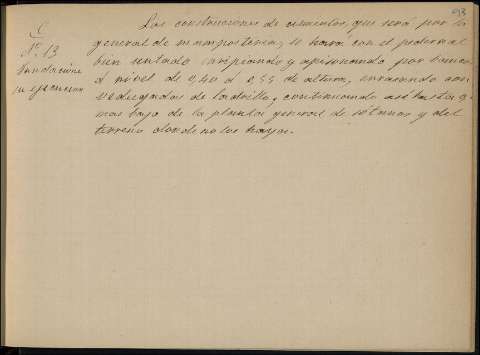 93
C
Nº 13
Fundacione
su ejecucion
Las construcciones de cimientos, que será por lo
general de mampostería, se hará con el pedernal
bien sentado ripiando y apisonando por bancos
á nivel de 0,40 á 0,55 de altura, enrasando con
verdugadas de ladrillo, continuando así hasta
mas bajo de la planta general de sótanos y del
terreno donde no los haya.